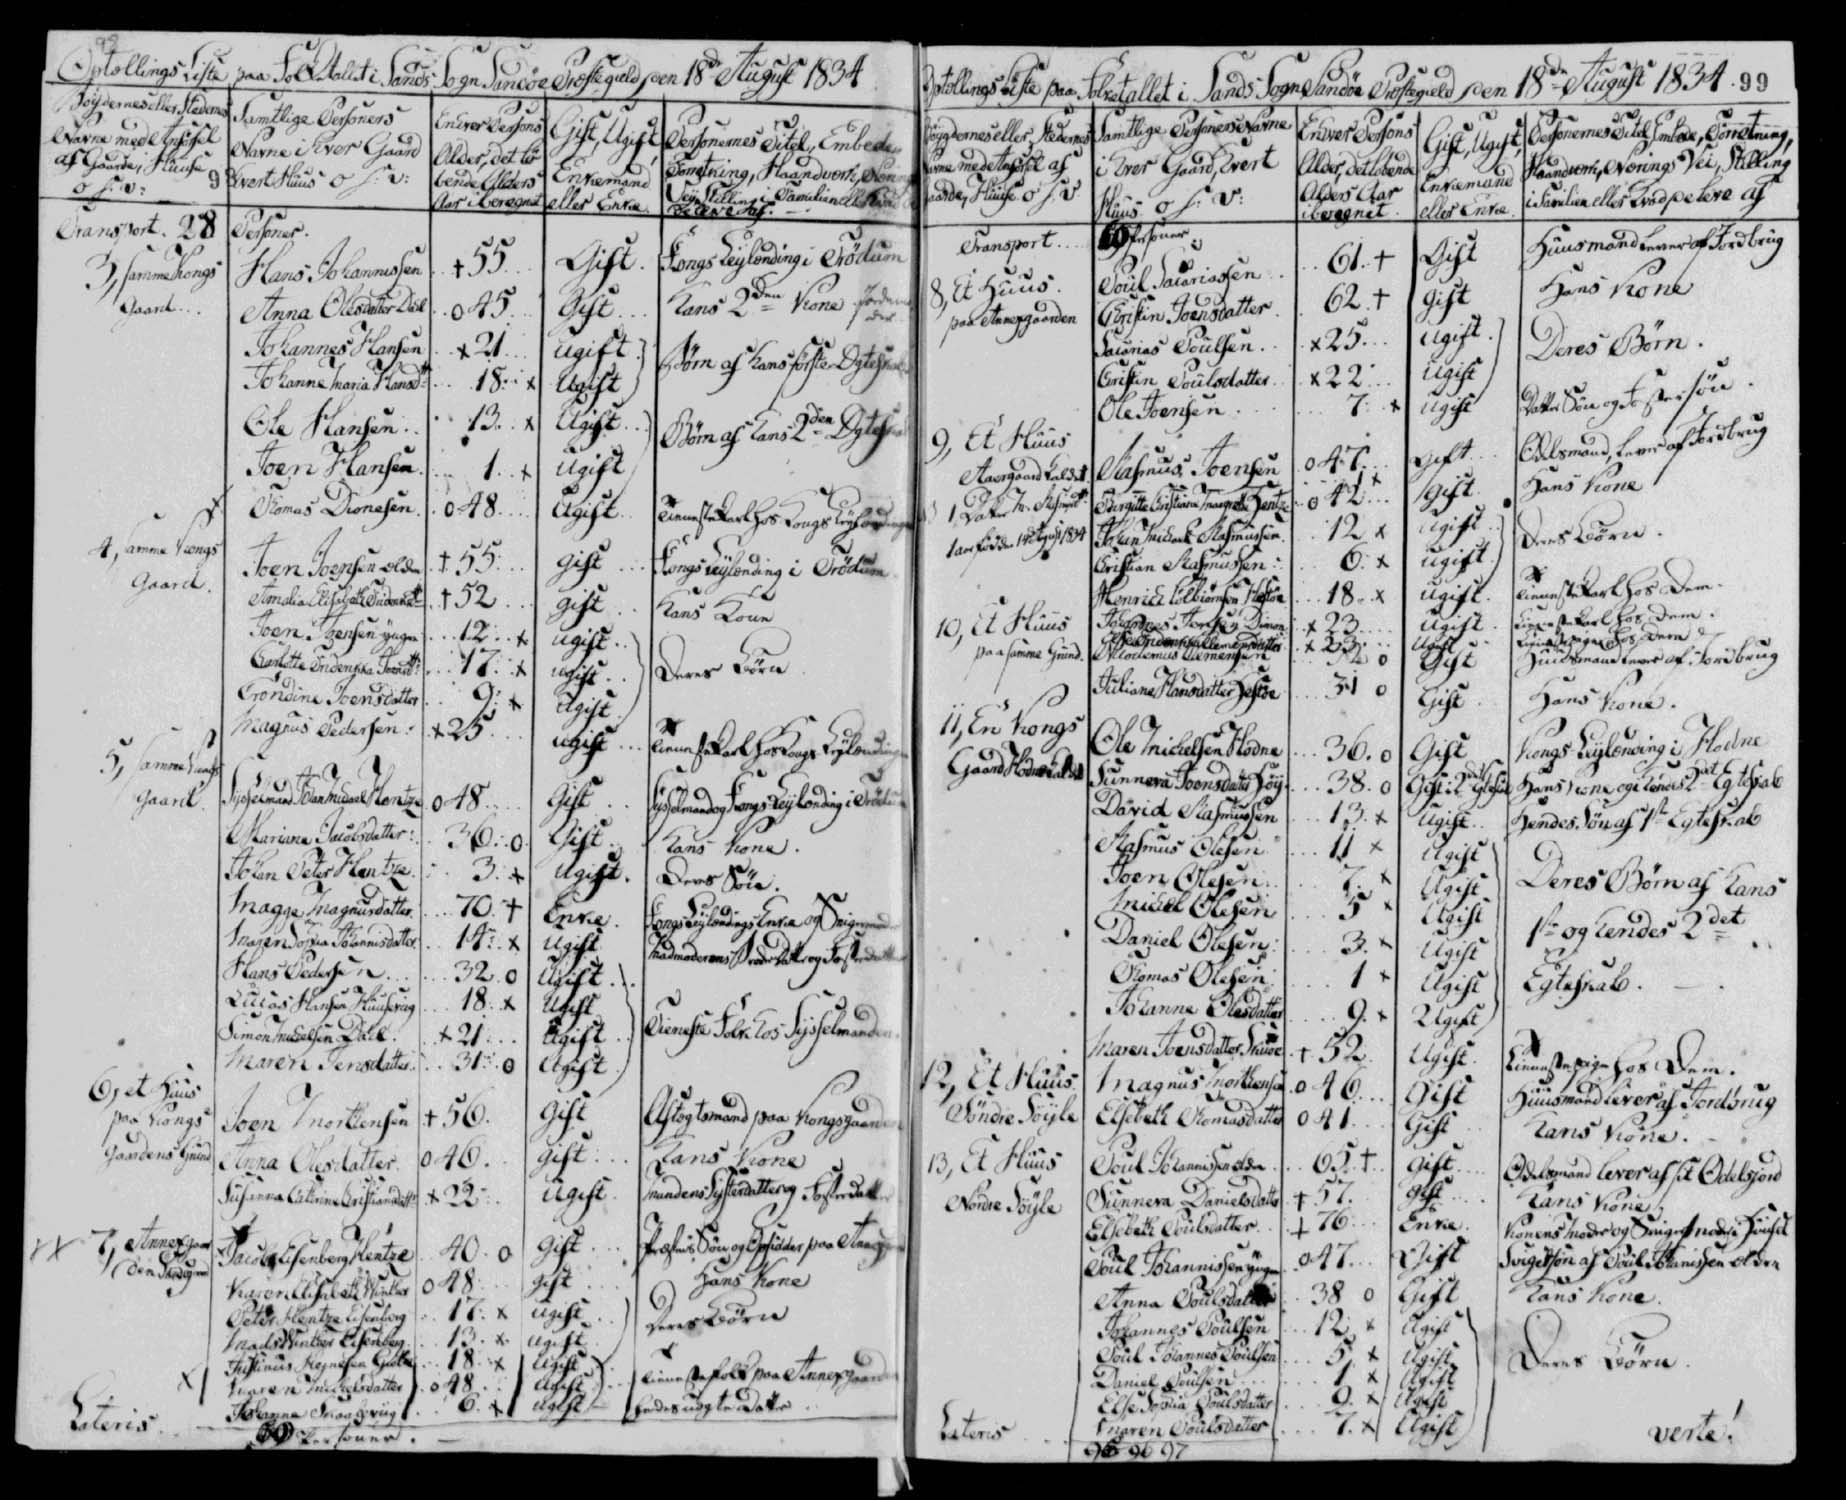 98
Optællings Liste paa Folketallet i Sands Sogn Sandøe Præstegield den 18de August 1834
Bøydernes eller Stedernes Navne med Antal af Gaarde, Huuse o s: v:
Samtlige Personers Navne i hver Gaard hvert Huus o s: v:
Enhver Persons Alder, det løbende Alders Aar iberegnet
Gift, Ugift, Enkemand eller Enke
Personernes Titel, Embede, Forretning, Haandverk, Nærings Vej, Stilling i Familien
Transport. 28 Personer.
3, samme Kongs Gaard
Hans Johannissen + 55 Gift. Kongs Leylending i Trödum
Anna Olesdatter Dal o 45 Gift Hans 2den Kone
Johannes Hansen x 21 ugift
Johanne Maria Hansdtr 18 x Ugift Børn af hans første Ægteskab
Ole Hansen 13 x Ugift
Joen Hansen 1 x Ugift Børn af hans 2den Ægteskab
Thomas Dionesen o 48 Ugift Tienestekarl hos Kongs Leylendingen
4, samme Kongs Gaard
Joen Joensen olden + 55 gift Kongs Leylending i Trödum
Amalia Elisabeth + 52 gift Hans Kone
Joen Joensen yngre 12 x ugift
Carlotte Joensdtr 17 x ugift Deres Børn
Trondine Joensdatter 9 x Ugift
Magnus Pedersen x 25 ugift Tienestekarl hos Kongs Leylendingen
5, samme Kongs Gaard
Sysselmand Johan Michael Hentze o 48 Gift Sysselmand og Kongs Leylending i Trödum
Mariane Jacobsdatter 36 o Gift Hans Kone.
Johan Peter Hentze 3 x Ugift. Deres Søn.
Magge Magnusdatter 70 + Enke Kongs Leylendings Enke og Svigermoder
Maren Sophia Johannisdatter 14 x ugift Madmoderens Broderdatter og Fosterdatter
Hans Pedersen 32 o Ugift
Lucas Hansen 18 x Ugift
Simon Michelsen Dall x 21 Ugift Tieneste Folk hos Sysselmanden.
Maren Jensdatter 31 o Ugift
6, et Huus paa Kongs Gaardens Grund
Joen Mortensen + 56 Gift Aftogtsmand paa Kongsgaarden
Anna Olesdatter o 46 Gift Hans Kone
Susanna Catrina Cristiansdatter x 22 ugift Mandens Systerdatter og Fosterdatter
7, Annexgaarden
Jacob Eisenberg Hentze 40 o gift Præstens Søn og Opsidder paa Annexgaarden
Karen Elisabeth Winther o 48 gift Hans Kone
Peter Hentze Eisenberg 17 x ugift
Mads Winther Eisenberg 13 x ugift Deres Børn
Justinus 18 x Ugift
Maren Michelsdatter o 48 Ugift Tienestefolk paa Annexgaarden
Johanne 6 x ugift hendes uægte Datter
Lateris 69 Personer.
Optællings Liste paa Folketallet i Sands Sogn Sandøe Præstegield den 18de August 1834. 99
Bøydernes eller Stedernes Navne med Antal af Gaarde, Huuse o s v
Samtlige Personers Navne i hver Gaard, hvert Huus o s: v:
Enhver Persons Alder, det løbende Alders Aar iberegnet
Gift, Ugift, Enkemand eller Enke
Personernes Titel, Embede, Forretning, Haandverk, Nærings Vei, Stilling i Familien eller hvad de leve af
Transport 69 Personer
8, Et Huus paa Annexgaarden
Poul Sacariassen 61 + Gift Huusmand lever af Jordbrug
Cristin Joensdatter 62 + gift Hans Kone
Sacarias Poulsen x 25 ugift
Cristin Poulsdatter x 22 ugift Deres Børn.
Ole Joensen 7 x ugift Datter Søn og Fostersøn.
9, Et Huus Aargaard kaldet
Rasmus Joensen o 47 Gift Odelsmand, lever af Jordbrug
Birgitte Cristiane Margrethe Hentze o 42 Gift Hans Kone
1 Datter
Johan Michael Rasmussen 12 x ugift
Cristian Rasmussen 6 x ugift Deres Børn.
Henrich 18 x ugift Tienestekarl hos Dem
Johannes Joensen Dimon x 23 Ugift Tienestekarl hos Dem.
x 23 Ugift Tienestepige hos Dem
10, Et Huus paa samme Grund
Clemensen o Gift Huusmand lever af Jordbrug
Juliane Hansdatter 31 o Gift Hans Kone.
11, En Kongs Gaard Hodne kaldet
Ole Michelsen Hodne 36 o Gift Kongs Leylending i Hodne
Sunneva Joensdatter 38 o Gift i 2det Egteskab Hans Kone og i hendes 2det Egteskab
David Rasmussen 13 x ugift Hendes Søn af 1ste Egteskab
Rasmus Olesen 11 x Ugift
Joen Olesen 7 x Ugift Deres Børn af hans
Michel Olesen 5 x Ugift 1ste og hendes 2det
Daniel Olesen 3 x Ugift Egteskab.
Thomas Olesen 1 x Ugift
Johanne Olesdatter 9 x Ugift
Maren Joensdatter + 52 Ugift Tienestepige hos Dem.
12, Et Huus Søndre Søyle
Magnus Mortensen o 46 Gift Huusmand lever af Jordbrug
Elsebeth Thomasdatter o 41 Gift Hans Kone.
13, Et Huus Nordre Søyle
Poul Johannissen olden 65 + gift Odelsmand lever af sit Odelsjord
Sunneva Danielsdatter + 57 gift Hans Kone
Elsebeth Poulsdatter + 76 Enke Konens Moder og
Poul Johannissen yngre o 47 Gift Svigersøn af Poul Johannissen olden
Anna Poulsdatter 38 o Gift Hans Kone.
Johannes Poulsen 12 x Ugift
Poul Johannes Poulsen 5 x Ugift Deres Børn.
Daniel Poulsen 1 x Ugift
Else Sophia Poulsdatter 9 x Ugift
Maren Poulsdatter 7 x Ugift
Lateris 96 97
verte!